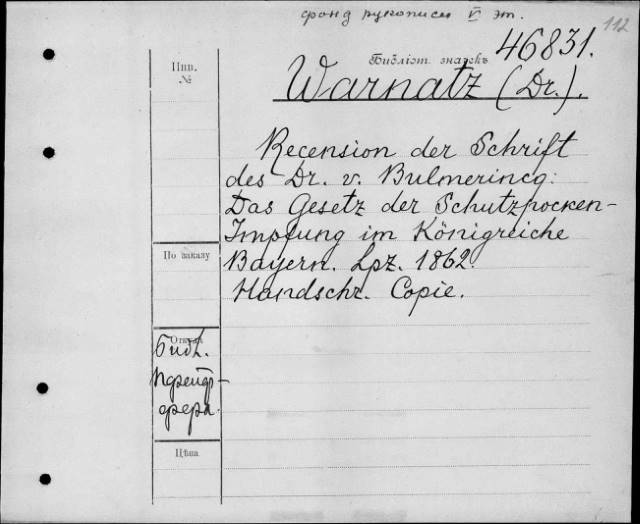 фонд рукописи VI эт.
112
46831.
Инв.
№
Библіот. значекъ
Warnatz (Dr.).
Recension der Schrift
des Dr. v. Bulmerincq:
Das Gesetz der Schutzpocken-
Impfung im Königreiche
Bayern. Lpz. 1862.
Handschr. Copie.
По заказу
Откуда
Библ.
Пфейф-
фера
Цѣна